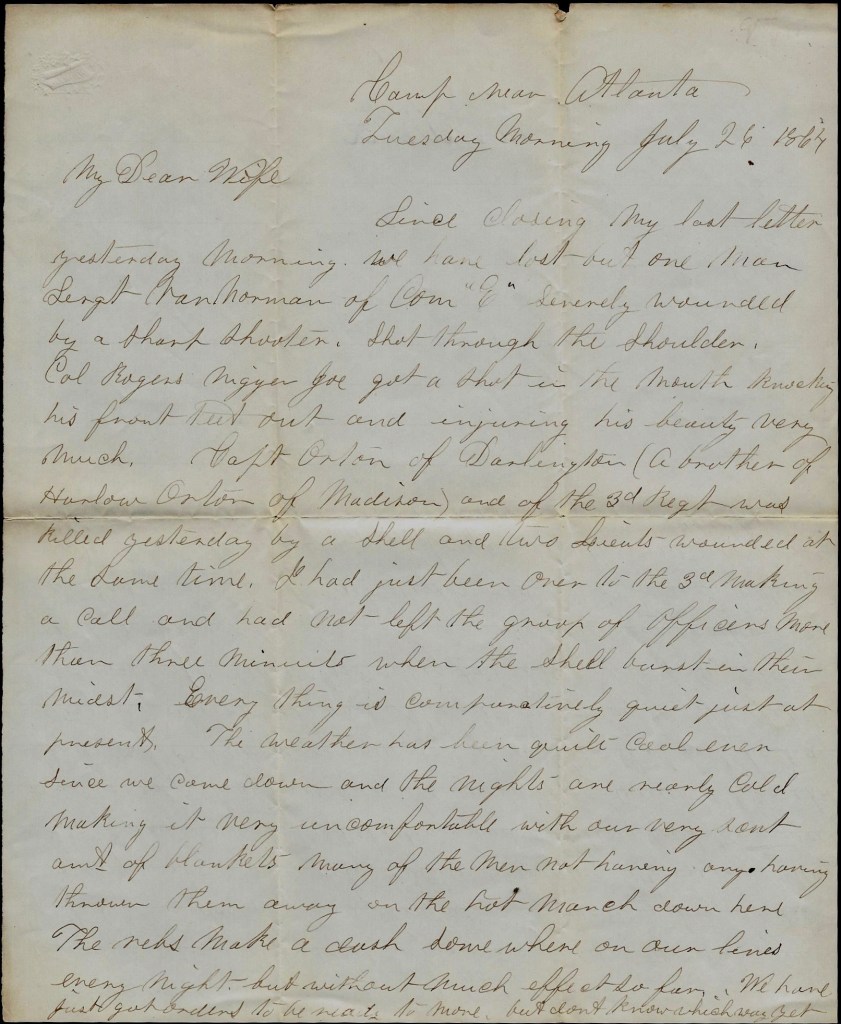 Camp Near Atlanta
Tuesday Morning July 26 1864
My Dear Wife
Since closing my last letter
yesterday morning. We have lost but one man
Sergt Van Norman of Com "E" severely wounded
by a sharp shooter. Shot through the shoulder.
Col Rogers nigger Joe got a shot in the mouth knocking
his front teet out and injuring his beauty very
much. Capt Orton of Darlington (a brother of
Harlow Orton of Madison) and of the 3d Regt was
killed yesterday by a shell and two Lieuts wounded at
the same time. I had just been over to the 3d making
a call and had not left the group of Officers more
than three minuits when the shell burst in their
midst. Every thing is comparatively quiet just at
present. The weather has been quite cool ever
since we came down and the nights are nearly cold
making it very uncomfortable with our very scant
amt of blankets many of the men not having any having
thrown them away on the hot march down here
The rebs make a dash some where on our lines
every night but without much effect so far. We have
just got orders to be ready to move, but dont know which way yet